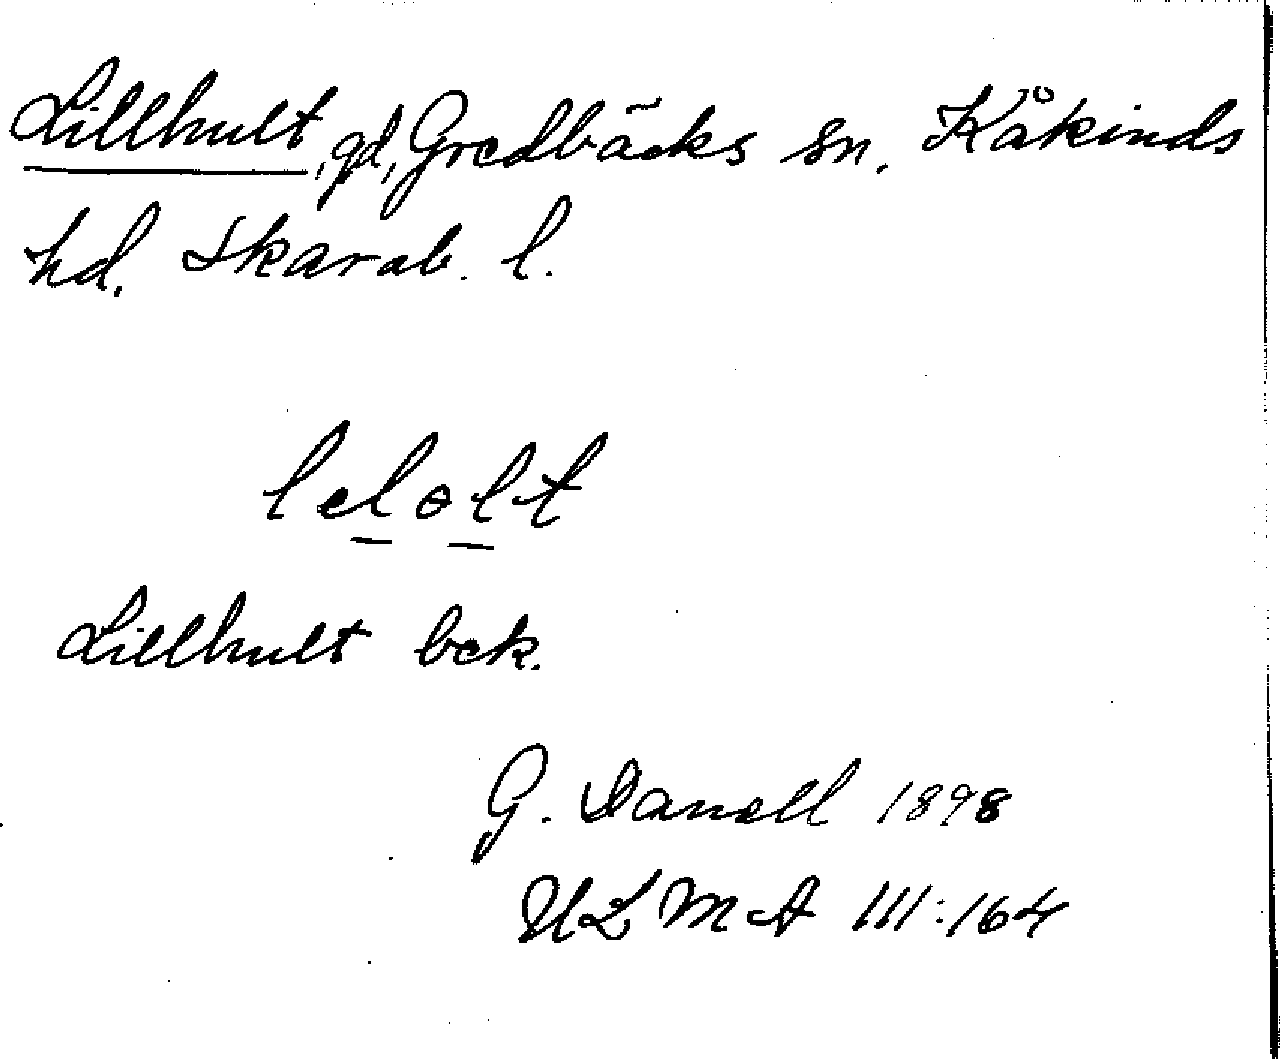 Lillhult, gd, Gredbäcks sn. Kåkinds
hd. Skarab. l.
lelolt
Lillhult bek.
G. Danell 1898
ULMA III:164